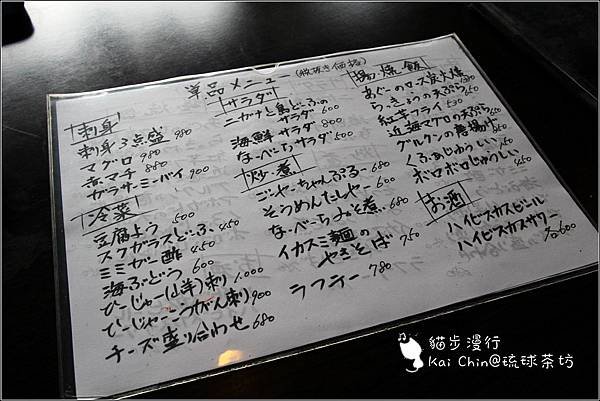 単品メニュー(税抜き価格)
刺身
刺身3点盛 980
マグロ 980
赤マチ 880
ガラサーミーバイ 900
冷菜
豆腐よう 500
スクガラスどうふ 450
ミミガー酢 450
海ぶどう 600
ひーじゃー(山羊)刺 1,000
ひーじゃーこうがん刺 900
チーズ盛り合わせ 680
サラダ
ニガナと島どうふの
サラダ 600
海鮮サラダ 800
なーべーらサラダ 500
炒・煮
ごーやーちゃんぷるー 680
そうめんたしやー 600
なーべーらみそ煮 680
イカスミ麺の
やきそば 750
ラフテー 780
揚 焼 飯
あぐーのロース炭火焼
らっきょうの天ぷら
紅芋フライ
近海マグロの天ぷら
グルクンの唐揚げ
くふぁじゅうしい
ボロボロじゅうしい 450
お酒
ハイビスカスビール
ハイビスカスサワー
各600
貓步漫行
Kai Chin@琉球茶坊